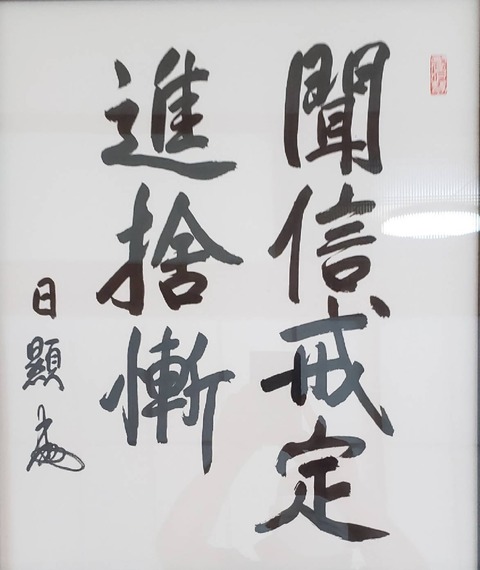 聞信戒定
進捨慚
日顯